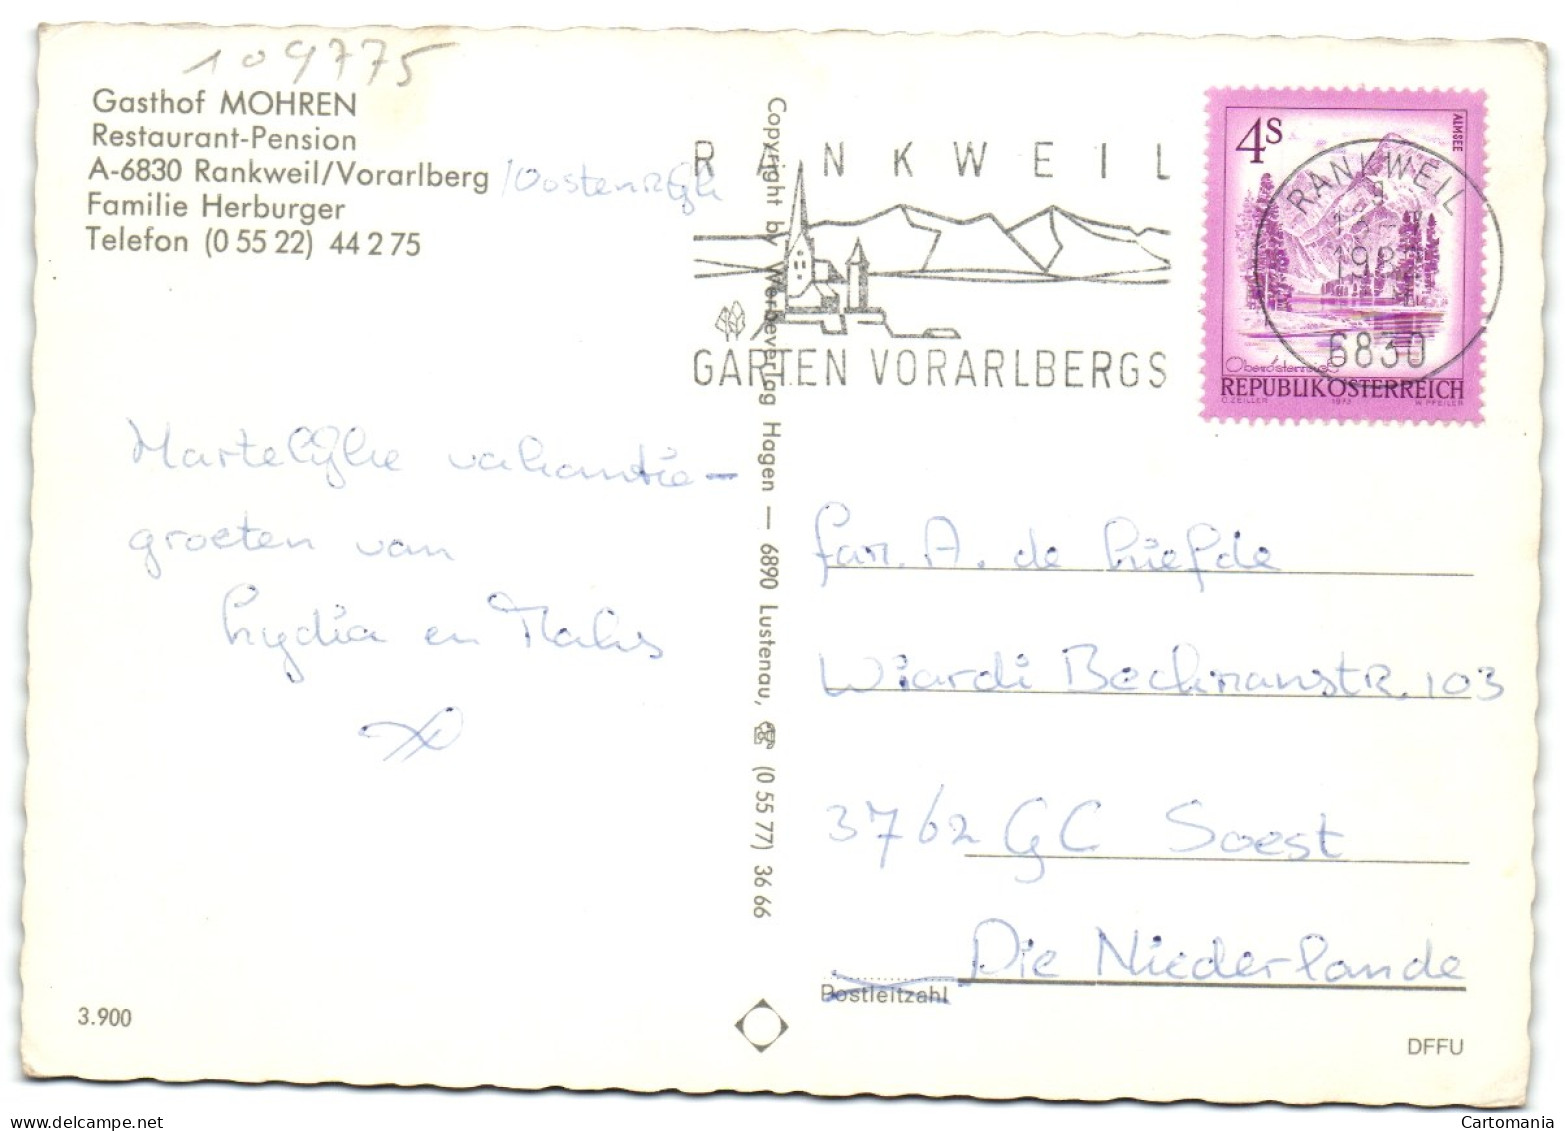 109775
Gasthof MOHREN
Restaurant-Pension
A-6830 Rankweil/Vorarlberg /Oostenrijk
Familie Herburger
Telefon (0 55 22) 44 2 75
RANKWEIL
GARTEN VORARLBERGS
4S
ALMSEE
Oberösterreich
REPUBLIK ÖSTERREICH
O. ZEILLER 1973 W. PFEILER
RANKWEIL
6830
Hartelijke vakantie-
groeten van
Lydia en
Copyright by Werbeverlag Hagen — 6890 Lustenau, ☎ (0 55 77) 36 66
fam. A. de Liefde
Wiardi Beckmanstr. 103
3762 GC Soest
Die Niederlande
Postleitzahl
3.900
DFFU
delcampe.net
Cartomania